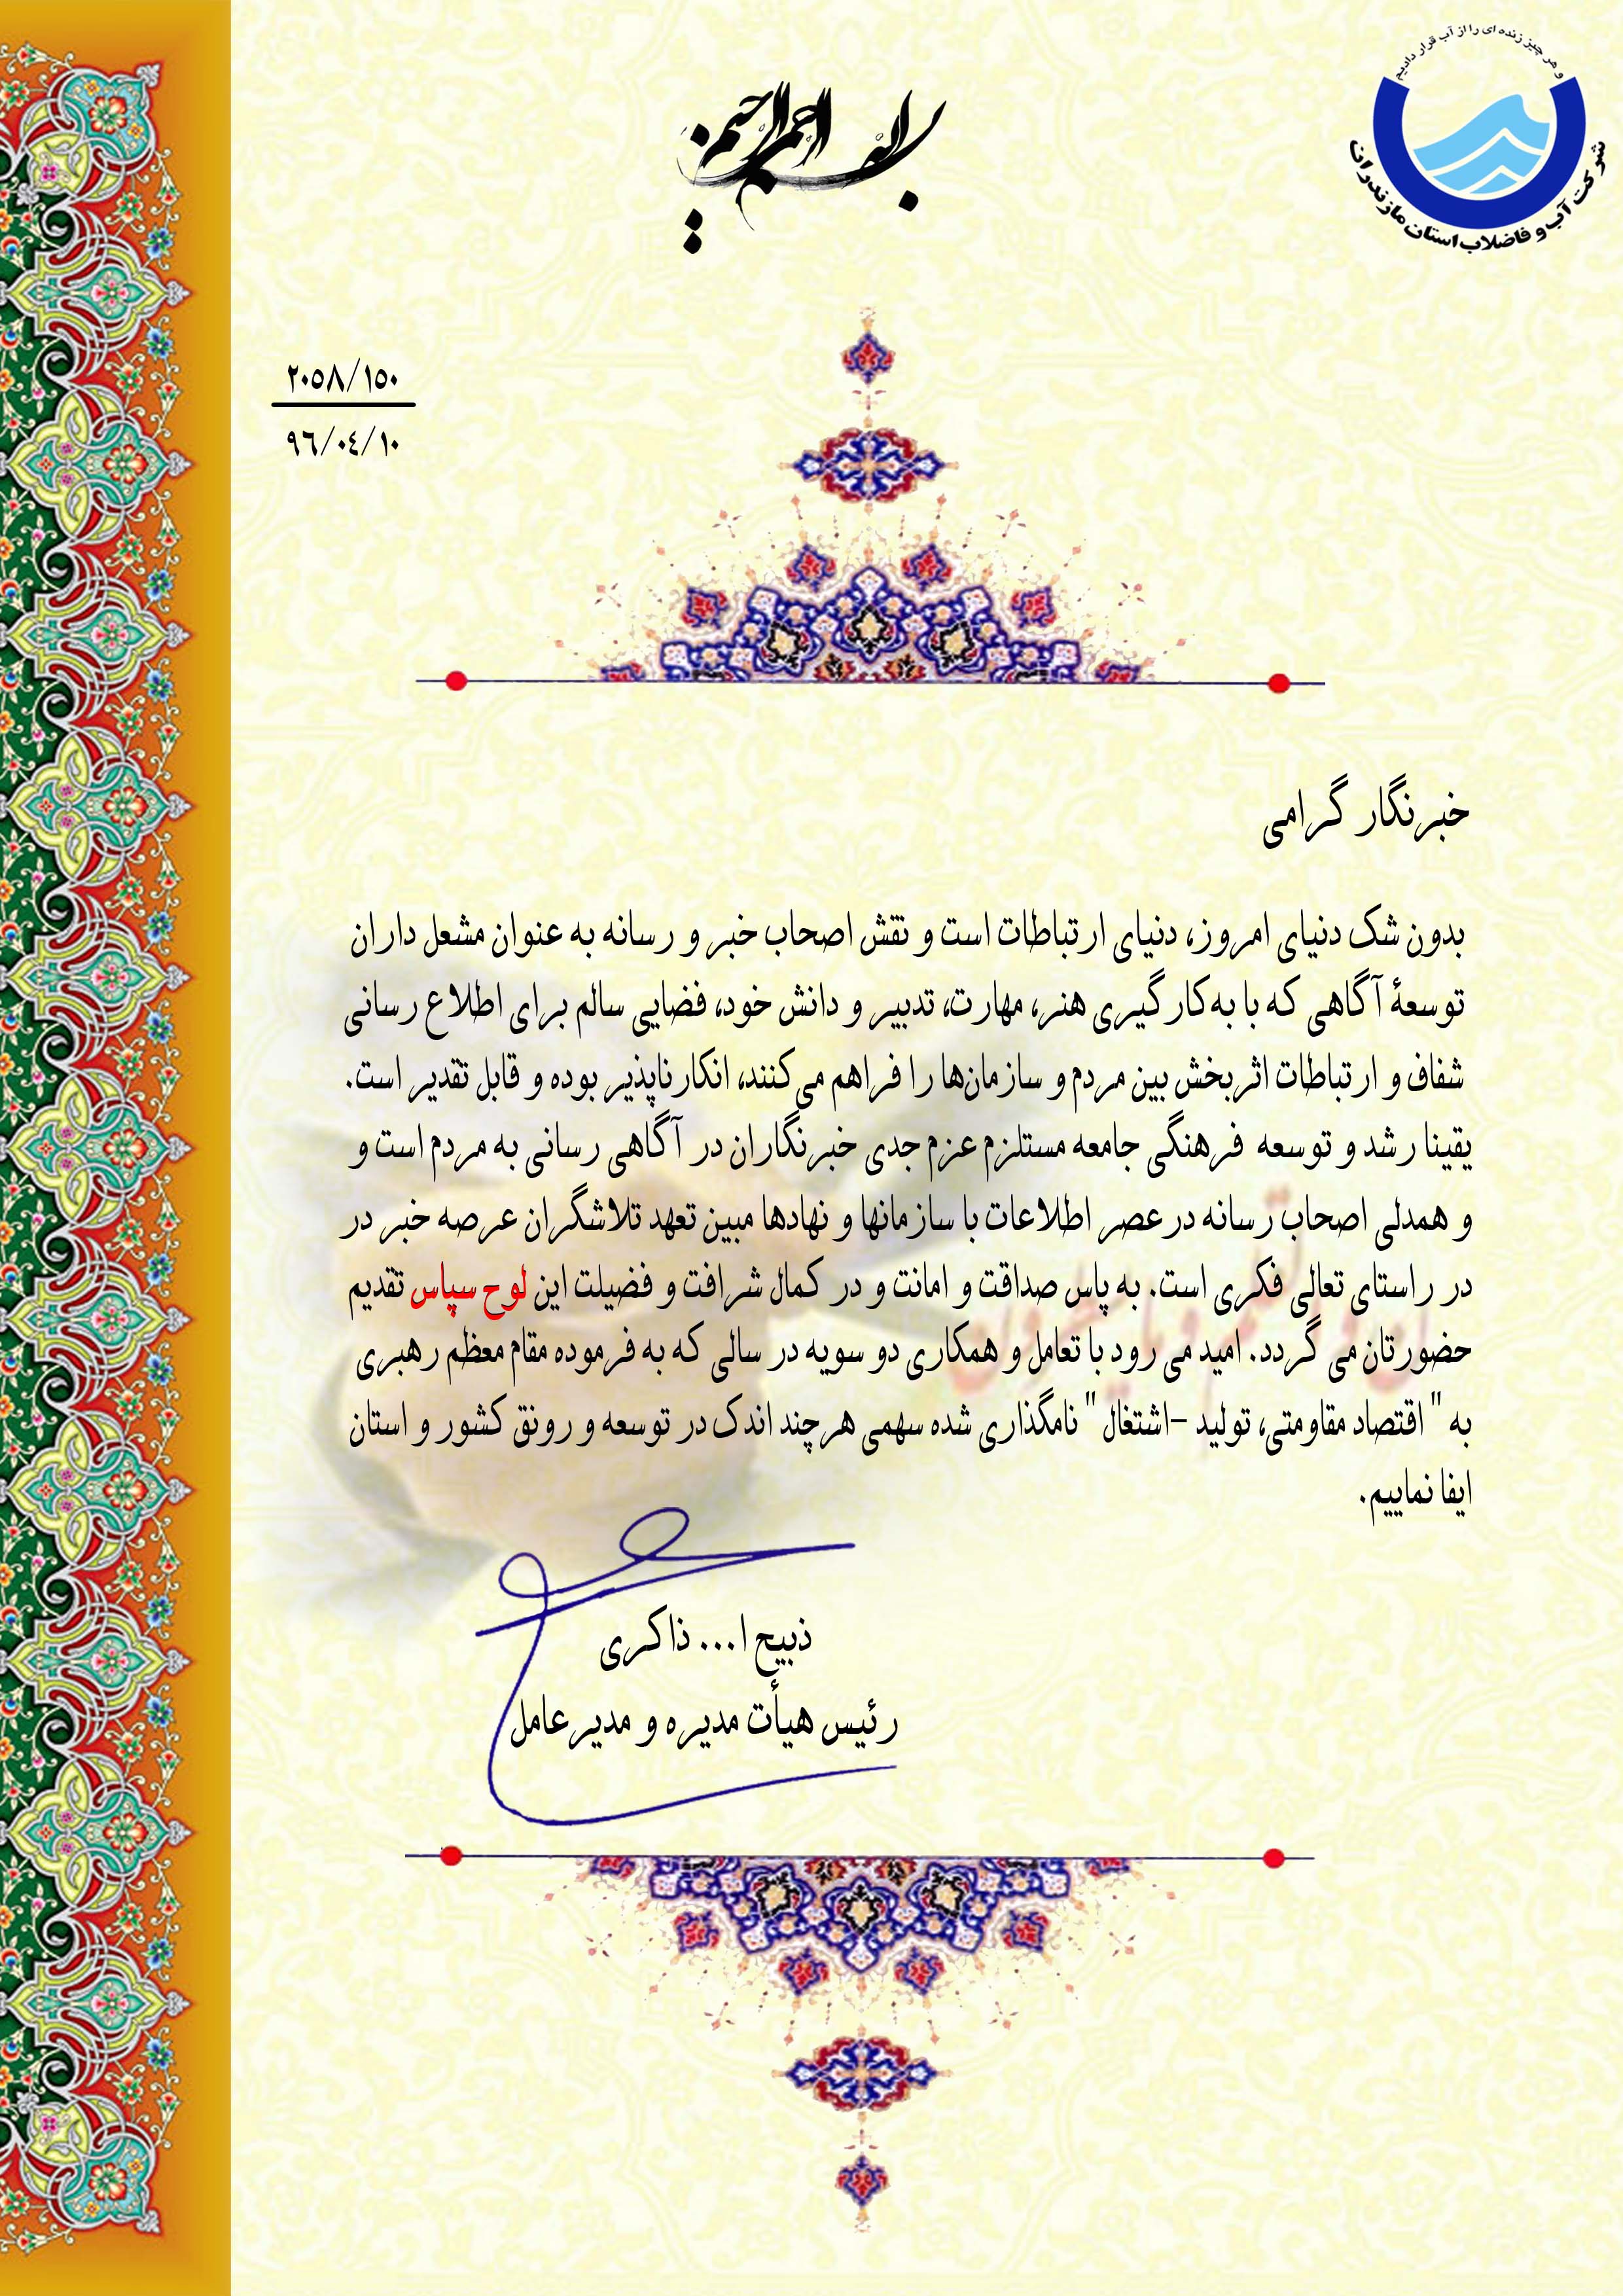 بسم الله الرحمن الرحیم
و هر چیز زنده ای را از آب قرار دادیم
شرکت آب و فاضلاب استان مازندران
۲۰۵۸/۱۵۰
۹٦/۰٤/۱۰
خبرنگار گرامی
بدون شک دنیای امروز، دنیای ارتباطات است و نقش اصحاب خبر و رسانه به عنوان مشعل داران
توسعهٔ آگاهی که با به‌کارگیری هنر، مهارت، تدبیر و دانش خود، فضایی سالم برای اطلاع رسانی
شفاف و ارتباطات اثربخش بین مردم و سازمان‌ها را فراهم می‌کنند، انکارناپذیر بوده و قابل تقدیر است.
یقینا رشد و توسعه فرهنگی جامعه مستلزم عزم جدی خبرنگاران در آگاهی رسانی به مردم است و
و همدلی اصحاب رسانه در عصر اطلاعات با سازمانها و نهادها مبین تعهد تلاشگران عرصه خبر در
در راستای تعالی فکری است. به پاس صداقت و امانت و در کمال شرافت و فضیلت این لوح سپاس تقدیم
حضورتان می گردد. امید می رود با تعامل و همکاری دو سویه در سالی که به فرموده مقام معظم رهبری
به " اقتصاد مقاومتی، تولید –اشتغال " نامگذاری شده سهمی هرچند اندک در توسعه و رونق کشور و استان
ایفا نماییم.
ذبیح ا... ذاکری
رئیس هیأت مدیره و مدیرعامل